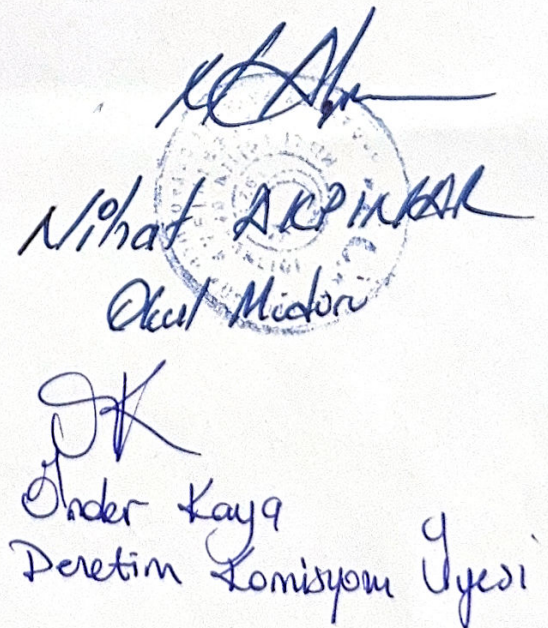 Nihat AKPINAR
Okul Müdürü
Önder Kaya
Denetim Komisyonu Üyesi